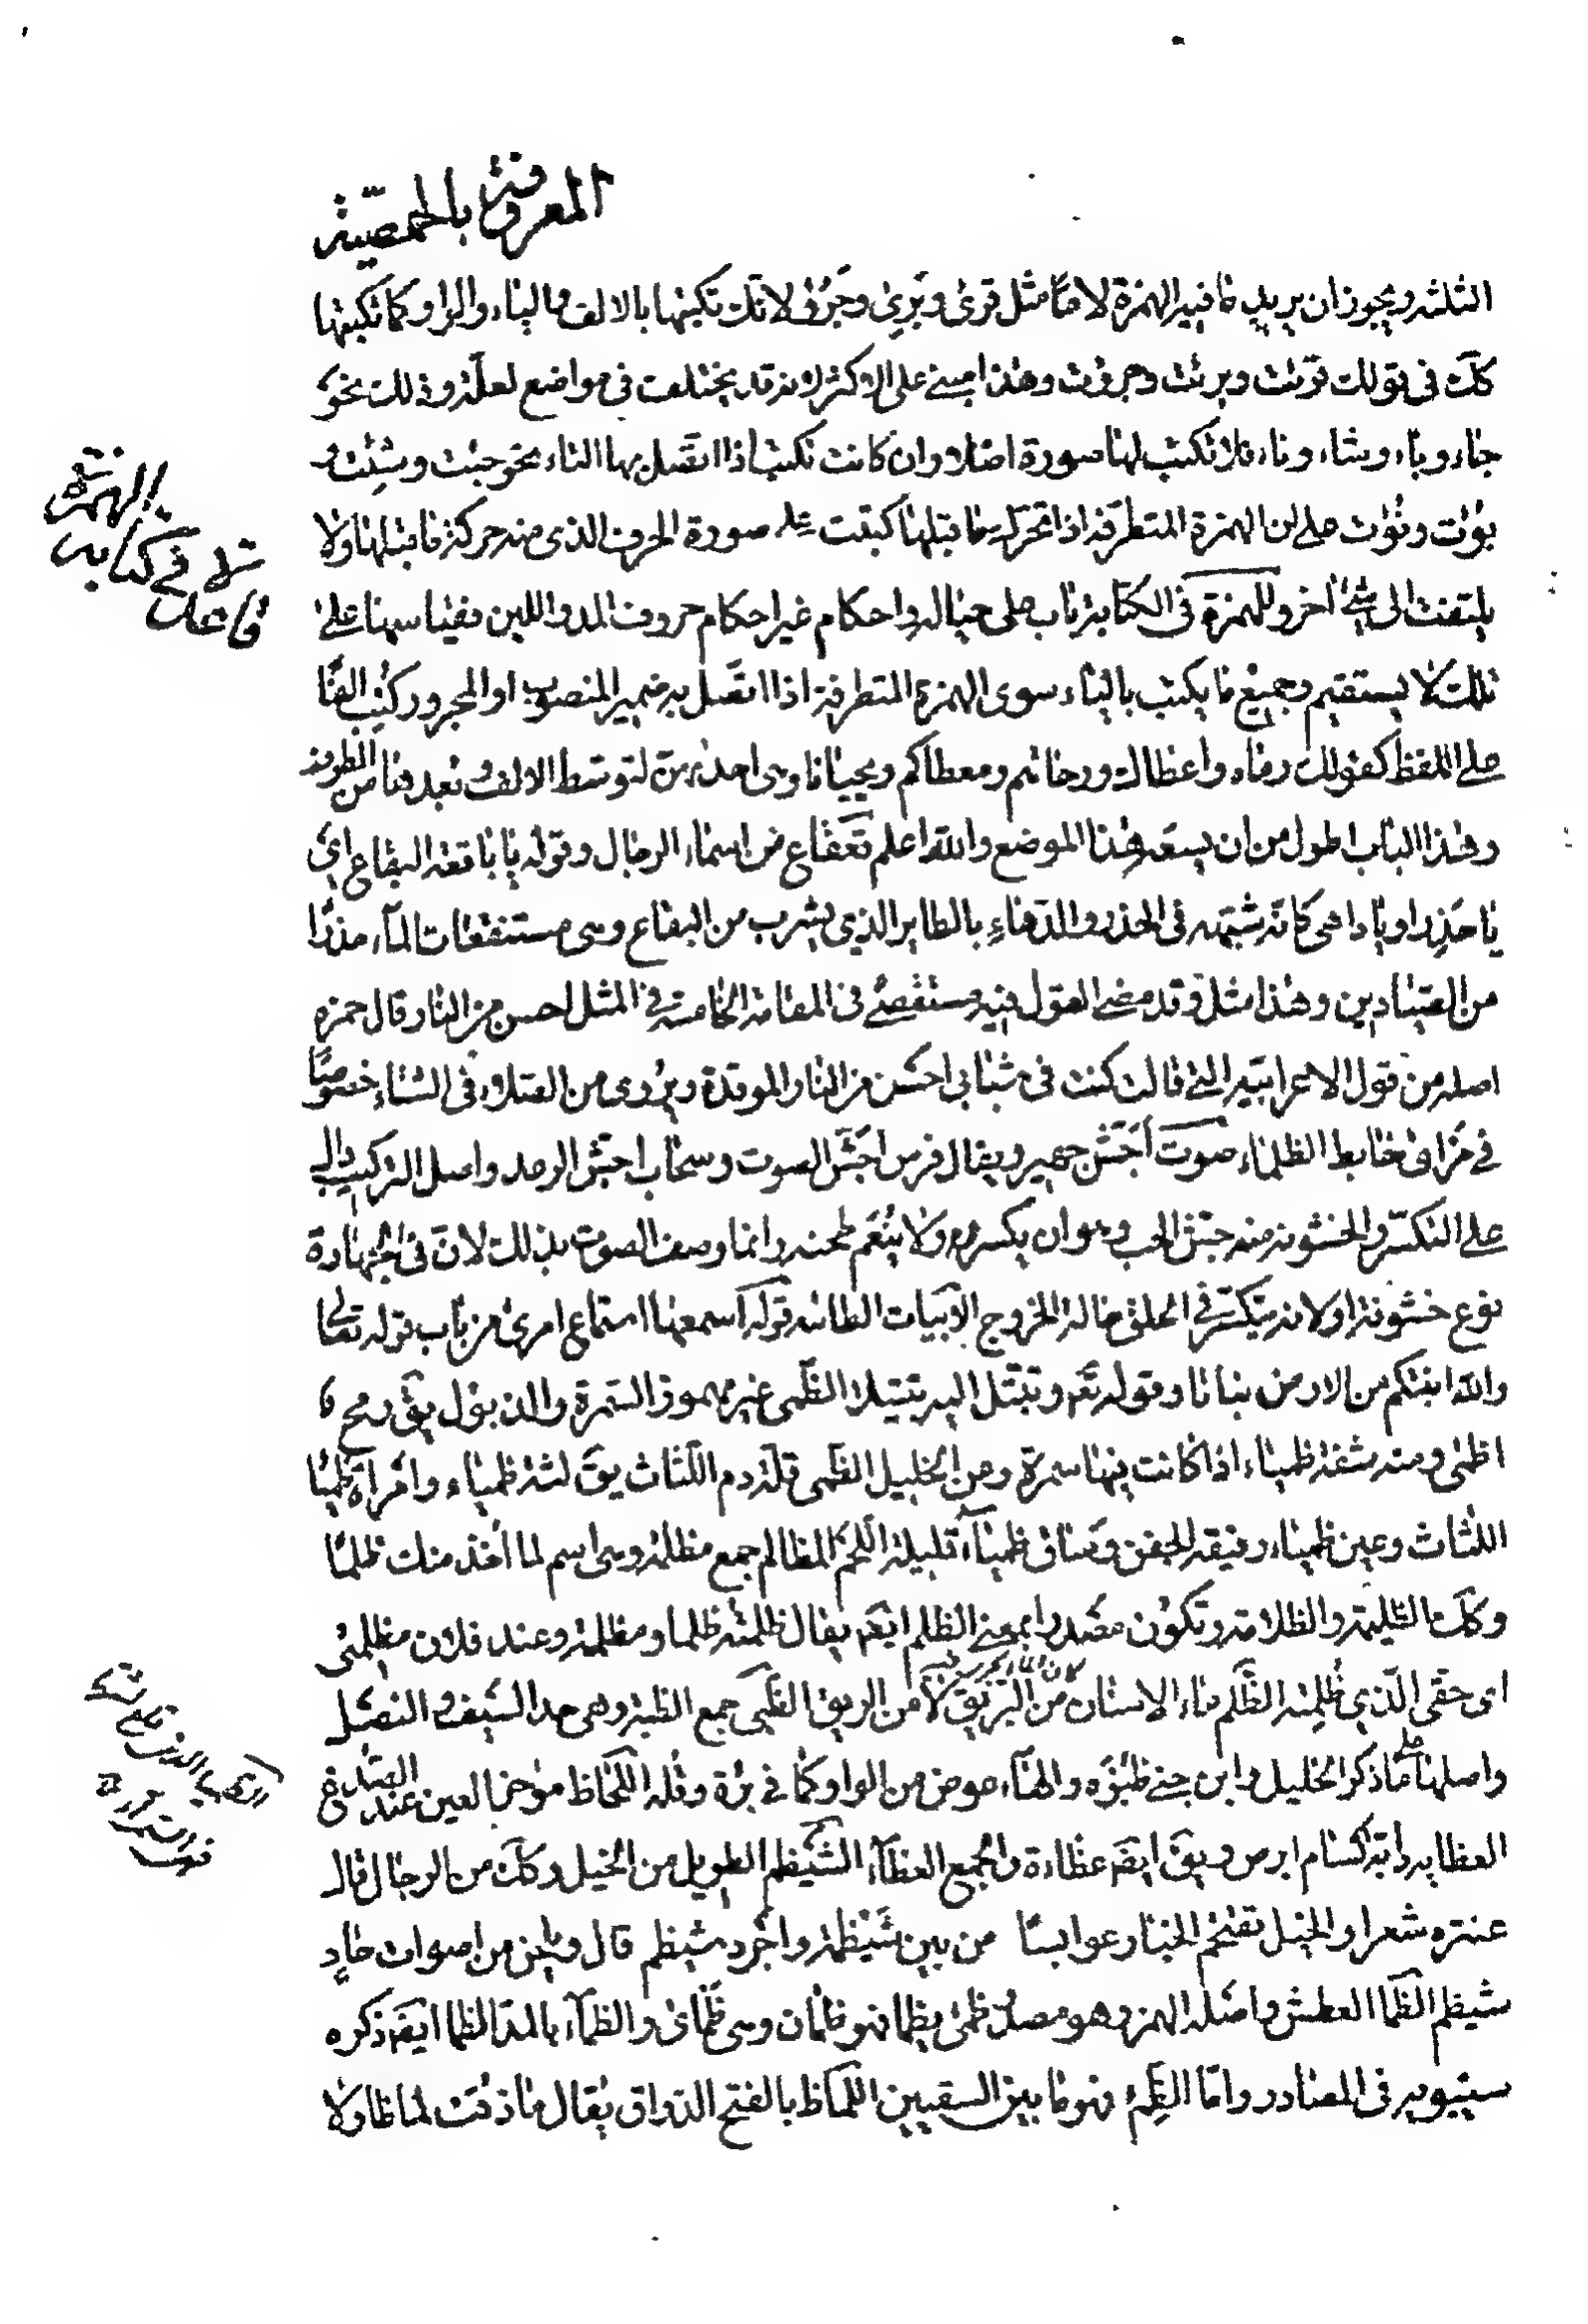 المعروفة بالحمصية
الثلثة ويجوز ان يريد ما فيه الهمزة لاما مثل قرئ وبرئ وجرؤ لانك تكتبها بالالف والياء والواو كما تكتبها
كك في قولك قرئت وبرئت وجرؤت وهذا مبني على الاكثر لانه قد يختلف في مواضع لعلة وذلك نحو
جاء وباء وشاء وناء فلا تكتب لها صورة اصلا وان كانت تكتب اذا اتصل بها التاء نحو جئت وشئت و
بؤت ونؤت على ان الهمزة المتطرفة اذا تحرك ما قبلها كتبت على صورة الحرف الذي منه حركة ما قبلها ولا
يلتفت الى شئ آخر وللهمزة في الكتابة باب على حياله واحكام غير احكام حروف المد واللين فقياسهنا على
تلك لا يستقيم وجميع ما يكتب بالياء سوى الهمزة المتطرفة اذا اتصل به ضمير المنصوب او المجرور كتب الفا
على اللفظ كقولك رماه واعطاك ورحاهم ومعطاكم ويحيانا وهي احديهن لتوسط الالف وبعدها من الطرف
وهذا الباب اطول من ان يسعه هذا الموضع والله اعلم قعقاع من اسماء الرجال وقوله يا باقعة البقاع اي
يا حذرا ويا داهي كانه شبهه في الحذر والدهاء بالطاير الذي يشرب من البقاع وهي مستنقعات الماء حذرا
من الصيادين وهذا مثل وقد مضى القول فيه مستقصى في المقامة الخامسة في المثل احسن من النار قال حمزه
اصله من قول الاعرابية التي قالت كنت في شبابي احسن من النار الموقدة ويروى من الصلاء في الشتاء خصوصا
في مذاق مخابط الظلماء صوت اجش جهير ويقال فرس اجش الصوت وسحاب اجش الرعد واصل التركيب دال
على التكسر والخشونة منه جش الحب وهو ان يكسره ولا ينعم طحنه وانما وصف الصوت بذلك لان في الجهارة
نوع خشونة او لانه يتكسر في الحلق حالة الخروج الابيات الظائية قوله اسمعها استماع امرئ من باب قوله تعالى
والله انبتكم من الارض نباتا وقوله تع وتبتل اليه تبتيلا الظمى غير مهموز السمرة والذبول يق رمح
اظمى ومنه شفة ظمياء اذا كانت فيها سمرة وعن الخليل الظمى قلة دم اللثاث يق لثة ظمياء وامراة ظميا
اللثاث وعين ظمياء رقيقة الجفن وساق ظمياء قليلة اللحم المظالم جمع مظلمة وهي اسم لما اخذ منك ظلما
وكك الظليمة والظلامة وتكون مصدرا بمعنى الظلم ايضا يقال ظلمته ظلما ومظلمة وعند فلان مظلمتي
اي حقي الذي ظلمته الظلم ماء الاسنان من البريق لا من الريق الظبى جمع الظبة وهي حد السيف والنصل
واصلها على ما ذكر الخليل وابن جني ظبوة والهاء عوض من الواو كما في برة وقلة اللحاظ مؤخر العين عند الصدغ
العظاية دابة كسام ابرص ويق ايضا عظاءة والجمع العظاء الشيظم الطويل من الخيل وكك من الرجال قال
عنتره شعر والخيل تقتحم الخبار عوابسا من بين شيظمة واجرد شيظم قال ويلحن من اصوات حاد
شيظم الظماء العطش واصله الهمز وهو مصدر ظمئ يظمأ فهو ظمان وهي ظمأى والظماء بالمد الظما ايضا ذكره
سيبويه في المصادر واما الظمء فهو ما بين السقيين اللماظ بالفتح الذواق يقال ما ذقت لماظا ولا
الهمزة
في كتابه